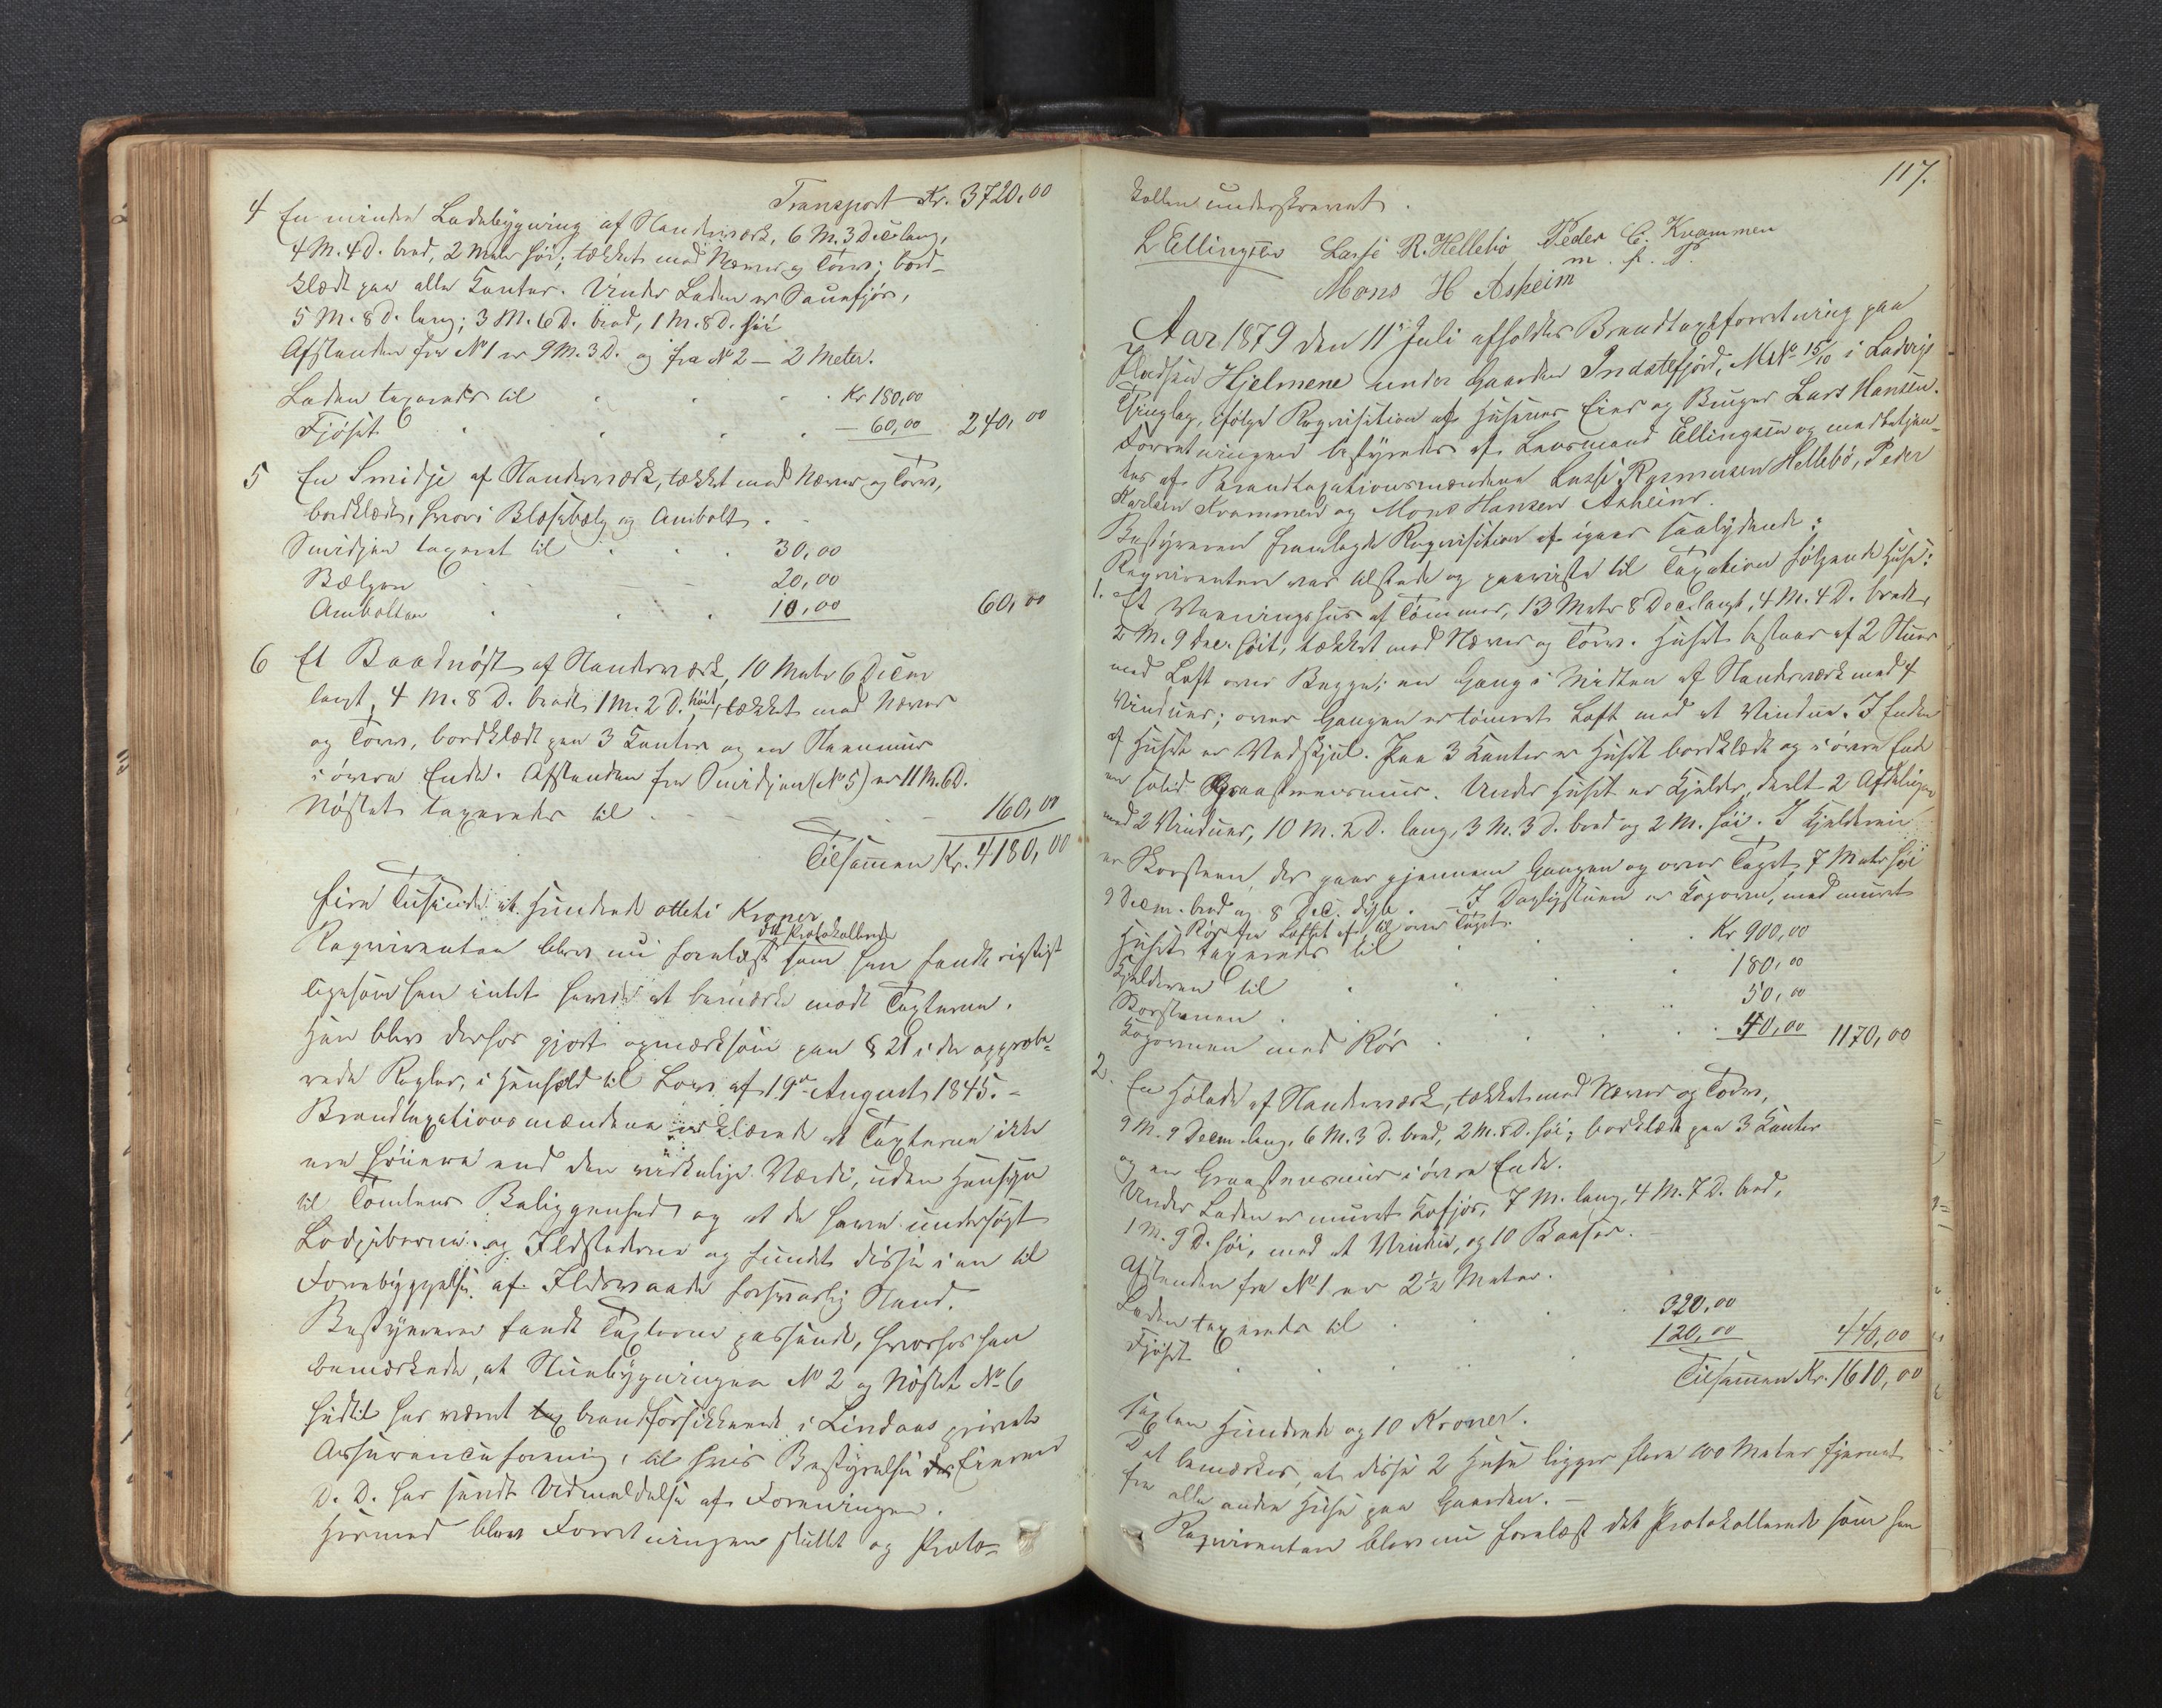 Transport Kr. 3720,00
4 En mindre Ladebygning af Standerværk, 6 M. 3 Dec. lang,
4 M. 4 D. bred, 2 Meter høi; tækket med Næver og Torv; bord-
klædt paa alle Kanter. Under Laden er Sauefjøs,
5 M. 8 D. lang; 3 M. 6 D. bred, 1 M. 8 D. høi
Afstanden fra No 1 er 9 M. 3 D. og fra No 2 – 2 Meter.
Laden taxeredes til Kr 180,00
Fjøset – 60,00 240,00
5 En Smidje af Standerværk, tækket med Næver og Torv,
bordklædt, hvori Blæsebælg og Ambolt.
Smidjen taxeret til 30,00
Bælgen 20,00
Ambolten 10,00 60,00
6 Et Baadnøst af Standerværk, 10 Meter 6 Decem
langt, 4 M. 8 D. bredt, 1 M. 2 D. høit, tækket med Næver
og Torv, bordklædt paa 3 Kanter og en Steenmur
i øvre Ende. Afstanden fra Smidjen (No 5) er 11 M. 6 D.
Nøstet taxeredes til 160,00
Tilsammen Kr. 4180,00
Fire Tusinde et Hundrede otteti Kroner.
Reqvirenten blev nu forelæst det Protokollerede som han fandt rigtigt
ligesom han intet havde at bemærke mod Taxterne.
Han blev derhos gjort opmærksom paa § 21 i de approbe-
rede Regler, i Henhold til Lov af 19de August 1845. –
Brandtaxationsmændene erklærede at Taxterne ikke
ere høiere end den virkelige Værdi, uden Hensyn
til Tomtens Beliggenhed og at de have undersøgt
Lodpiberne og Ildstederne og fundet disse i en til
Forebyggelse af Ildsvaade forsvarlig Stand.
Bestyreren fandt Taxterne passende, hvorhos han
bemærkede, at Stuebygningen No 2 og Nøstet No 6
hidtil har været tax brandforsikkrede i Lindaas private
Assuranceforening, til hvis Bestyrelse der Eieren
D. D. har sendt Udmeldelse af Foreningen.
Hermed blev Forretningen sluttet og Proto-
117.
kollen underskrevet.
L Ellingsen Lasse R. Hellebø Peder C. Kvammen
m. p. P.
Mons H Asheim
Aar 1879 den 11te Juli afholdtes Brandtaxtforretning paa
Pladsen Hjelmene under Gaarden Indstefjord, M No 15/10 i Ladvigs
Thinglag, ifølge Reqvisition af Husenes Eier og Bruger Lars Hansen.
Forretningen bestyredes af Lensmand Ellingsen og medbetjen-
tes af Brandtaxationsmændene Lasse Rasmussen Hellebø, Peder
Karlsen Kvammen og Mons Hansen Asheim.
Bestyreren fremlagde Reqvisition af igaar saalydende:
Reqvirenten var tilstede og paaviste til Taxation følgende Huse:
1. Et Vaaningshus af Tømmer, 13 Meter 8 Dec. langt, 4 M. 4 D. bredt,
2 M. 9 Dec. høit, tækket med Næver og Torv. Huset bestaar af 2 Stuer
med Loft over Begge; en Gang i Midten af Standerværk med 4
Vinduer; over Gangen er tømret Loft med et Vindue. I Enden
af Huset er Vedskjul. Paa 3 Kanter er Huset bordklædt og i øvre Ende
en solid Graasteensmur. Under Huset er Kjelder, deelt 2 Afdelinger
med 2 Vinduer, 10 M. 2 D. lang, 3 M. 3 D. bred og 2 M. høi. I Kjelderen
er Skorsteen, der gaar gjennem Gangen og over Taget, 7 Meter høi
9 Decem. bred og 8 Dec. dyb. – I Dagligstuen er Kogovn, med muret
Rør fra Loftet af til over Taget.
Huset taxeredes til Kr 900,00
Kjelderen til 180,00
Skorstenen 50,00
Kogovnen med Rør 40,00 1170,00
2. En Hølade af Standerværk, tækket med Næver og Torv,
9 M. 9 Decem lang, 6 M. 3 D. bred, 2 M. 8 D. høi; bordklædt paa 3 Kanter
og en Graasteensmur i øvre Ende.
Under Laden er muret Kofjøs, 7 M. lang, 4 M. 7 D. bred,
1 M. 9 D. høi, med et Vindue, og 10 Baaser.
Afstanden fra No 1 er 2½ Meter.
Laden taxeredes til 320,00
Fjøset 120,00 440,00
Tilsammen Kr. 1610,00
Sexten Hundrede og 10 Kroner.
Det bemærkes, at disse 2 Huse ligger flere 100 Meter fjernet
fra alle andre Huse paa Gaarden. –
Reqvirenten blev nu forelæst det Protokollerede som han